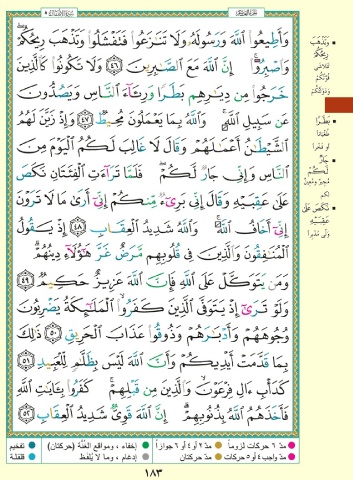 وَأَطِيعُوا۟ ٱللَّهَ وَرَسُولَهُۥ وَلَا تَنَٰزَعُوا۟ فَتَفْشَلُوا۟ وَتَذْهَبَ رِيحُكُمْ ۖ
وَٱصْبِرُوٓا۟ ۚ إِنَّ ٱللَّهَ مَعَ ٱلصَّٰبِرِينَ ٤٦ وَلَا تَكُونُوا۟ كَٱلَّذِينَ
خَرَجُوا۟ مِن دِيَٰرِهِم بَطَرًا وَرِئَآءَ ٱلنَّاسِ وَيَصُدُّونَ
عَن سَبِيلِ ٱللَّهِ ۚ وَٱللَّهُ بِمَا يَعْمَلُونَ مُحِيطٌ ٤٧ وَإِذْ زَيَّنَ لَهُمُ
ٱلشَّيْطَٰنُ أَعْمَٰلَهُمْ وَقَالَ لَا غَالِبَ لَكُمُ ٱلْيَوْمَ مِنَ
ٱلنَّاسِ وَإِنِّى جَارٌ لَّكُمْ ۖ فَلَمَّا تَرَآءَتِ ٱلْفِئَتَانِ نَكَصَ
عَلَىٰ عَقِبَيْهِ وَقَالَ إِنِّى بَرِىٓءٌ مِّنكُمْ إِنِّىٓ أَرَىٰ مَا لَا تَرَوْنَ
إِنِّىٓ أَخَافُ ٱللَّهَ ۚ وَٱللَّهُ شَدِيدُ ٱلْعِقَابِ ٤٨ إِذْ يَقُولُ
ٱلْمُنَٰفِقُونَ وَٱلَّذِينَ فِى قُلُوبِهِم مَّرَضٌ غَرَّ هَٰٓؤُلَآءِ دِينُهُمْ ۗ
وَمَن يَتَوَكَّلْ عَلَى ٱللَّهِ فَإِنَّ ٱللَّهَ عَزِيزٌ حَكِيمٌ ٤٩
وَلَوْ تَرَىٰٓ إِذْ يَتَوَفَّى ٱلَّذِينَ كَفَرُوا۟ ۙ ٱلْمَلَٰٓئِكَةُ يَضْرِبُونَ
وُجُوهَهُمْ وَأَدْبَٰرَهُمْ وَذُوقُوا۟ عَذَابَ ٱلْحَرِيقِ ٥٠ ذَٰلِكَ
بِمَا قَدَّمَتْ أَيْدِيكُمْ وَأَنَّ ٱللَّهَ لَيْسَ بِظَلَّٰمٍ لِّلْعَبِيدِ ٥١
كَدَأْبِ ءَالِ فِرْعَوْنَ ۙ وَٱلَّذِينَ مِن قَبْلِهِمْ ۚ كَفَرُوا۟ بِـَٔايَٰتِ ٱللَّهِ
فَأَخَذَهُمُ ٱللَّهُ بِذُنُوبِهِمْ ۗ إِنَّ ٱللَّهَ قَوِىٌّ شَدِيدُ ٱلْعِقَابِ ٥٢
وَتَذْهَبَ
رِيحُكُمْ
بَطَرًا
جَارٌ
لَّكُمْ
نَكَصَ عَلَى
عَقِبَيْهِ
مدّ ٦ حركات لزوماً
مدّ ٢ أو ٤ أو ٦ جوازاً
إخفاء، ومواقع الغنّة (حركتان)
تفخيم
مدّ واجب ٤ أو ٥ حركات
مدّ حركتان
إدغام، وما لا يُلفظ
قلقلة
١٨٣